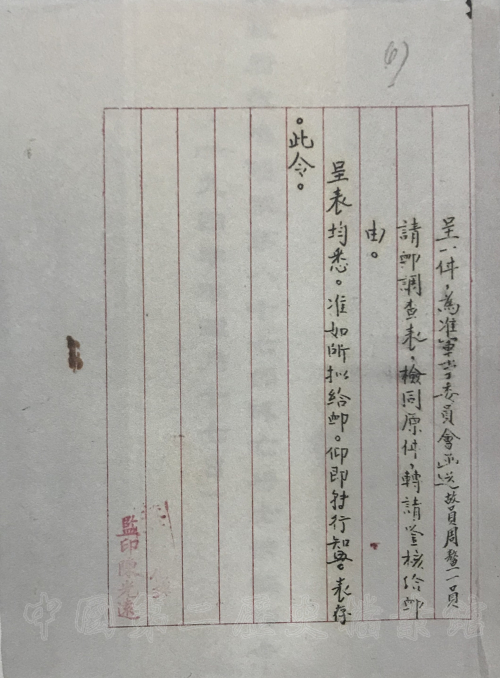 (6)
呈一件，為准軍事委員會函送故員周鰲一員
請卹調查表，檢同原件，轉請鑒核給卹
由。
呈表均悉。准如所拟給卹。仰即轉行知照。表存
。此令。
監印陳光遠